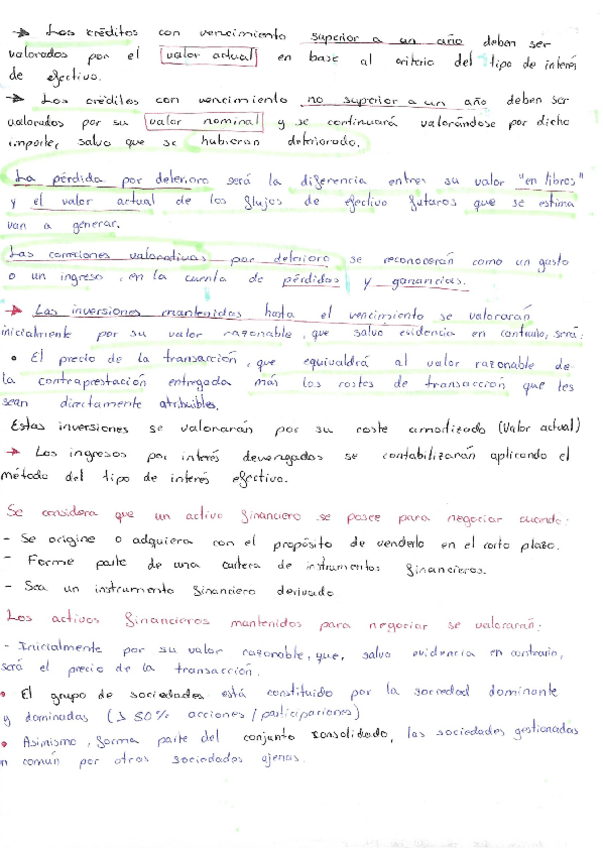 → Los créditos con vencimiento superior a un año deben ser
valorados por el valor actual en base al criterio del tipo de interés
de efectivo.
→ Los créditos con vencimiento no superior a un año deben ser
valorados por su valor nominal y se continuará valorándose por dicho
importe, salvo que se hubieran deteriorado.
La pérdida por deterioro será la diferencia entres su valor "en libros"
y el valor actual de los flujos de efectivo futuros que se estima
van a generar.
Las correciones valorativas por deterioro se reconocerán como un gasto
o un ingreso, en la cuenta de pérdidas y ganancias.
→ Las inversiones mantenidas hasta el vencimiento se valorarán
inicialmente por su valor razonable, que salvo evidencia en contrario, será:
• El precio de la transacción, que equivaldrá al valor razonable de
la contraprestación entregada más los costes de transacción que les
sean directamente atribuibles.
Estas inversiones se valorarán por su coste amortizado (Valor actual)
→ Los ingresos por interés devengados se contabilizarán aplicando el
método del tipo de interés efectivo.
Se considera que un activo financiero se posee para negociar cuando:
- Se origine o adquiera con el propósito de venderlo en el corto plazo.
- Forme parte de una cartera de instrumentos financieros.
- Sea un instrumento financiero derivado
Los activos financieros mantenidos para negociar se valorarán:
- Inicialmente por su valor razonable, que, salvo evidencia en contrario,
será el precio de la transacción.
• El grupo de sociedades está constituido por la sociedad dominante
y dominadas (> 50% acciones / participaciones)
• Asimismo, forma parte del conjunto consolidado, las sociedades gestionadas
en común por otras sociedades ajenas.